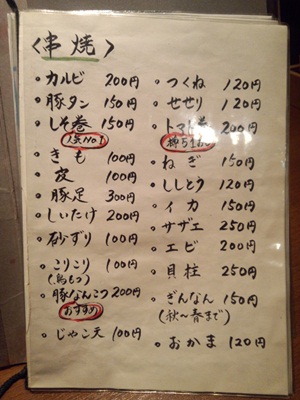 〈串焼〉
・カルビ 200円
・豚タン 150円
・しそ巻 150円
人気No1
・きも 100円
・皮 100円
・豚足 300円
・しいたけ 200円
・砂ずり 100円
・こりこり 100円
・豚なんこつ 200円
おすすめ
・じゃこ天 100円
・つくね 120円
・せせり 120円
・トマト巻 200円
・ねぎ 150円
・ししとう 120円
・イカ 150円
・サザエ 250円
・エビ 200円
・貝柱 250円
・ぎんなん 150円
(秋〜春まで)
・おかま 120円